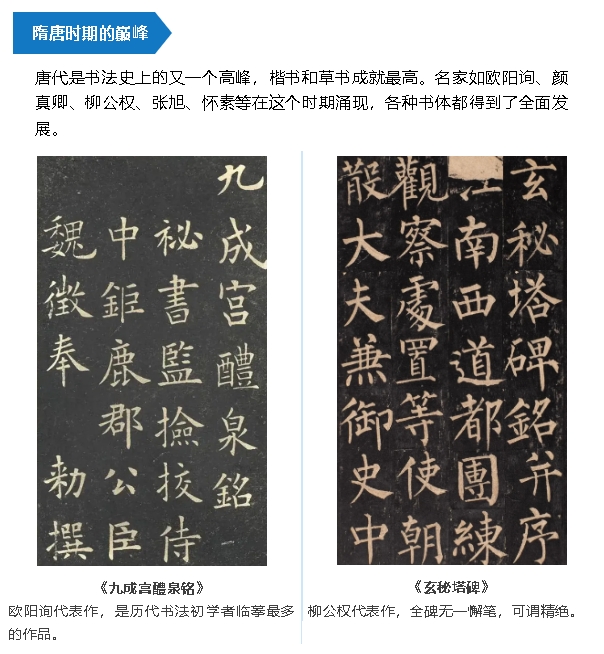 隋唐时期的巅峰
唐代是书法史上的又一个高峰，楷书和草书成就最高。名家如欧阳询、颜
真卿、柳公权、张旭、怀素等在这个时期涌现，各种书体都得到了全面发
展。
九成宫醴泉銘
秘書監撿挍侍
中鉅鹿郡公臣
魏徵奉 勑撰
玄秘塔碑銘并序
江南西道都團練
觀察處置等使朝
散大夫兼御史中
《九成宫醴泉铭》
欧阳询代表作，是历代书法初学者临摹最多
的作品。
《玄秘塔碑》
柳公权代表作，全碑无一懈笔，可谓精绝。